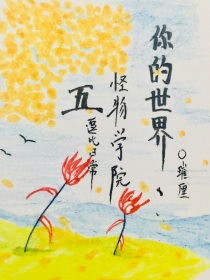 你的世界
怪物学院
五
逗比日常